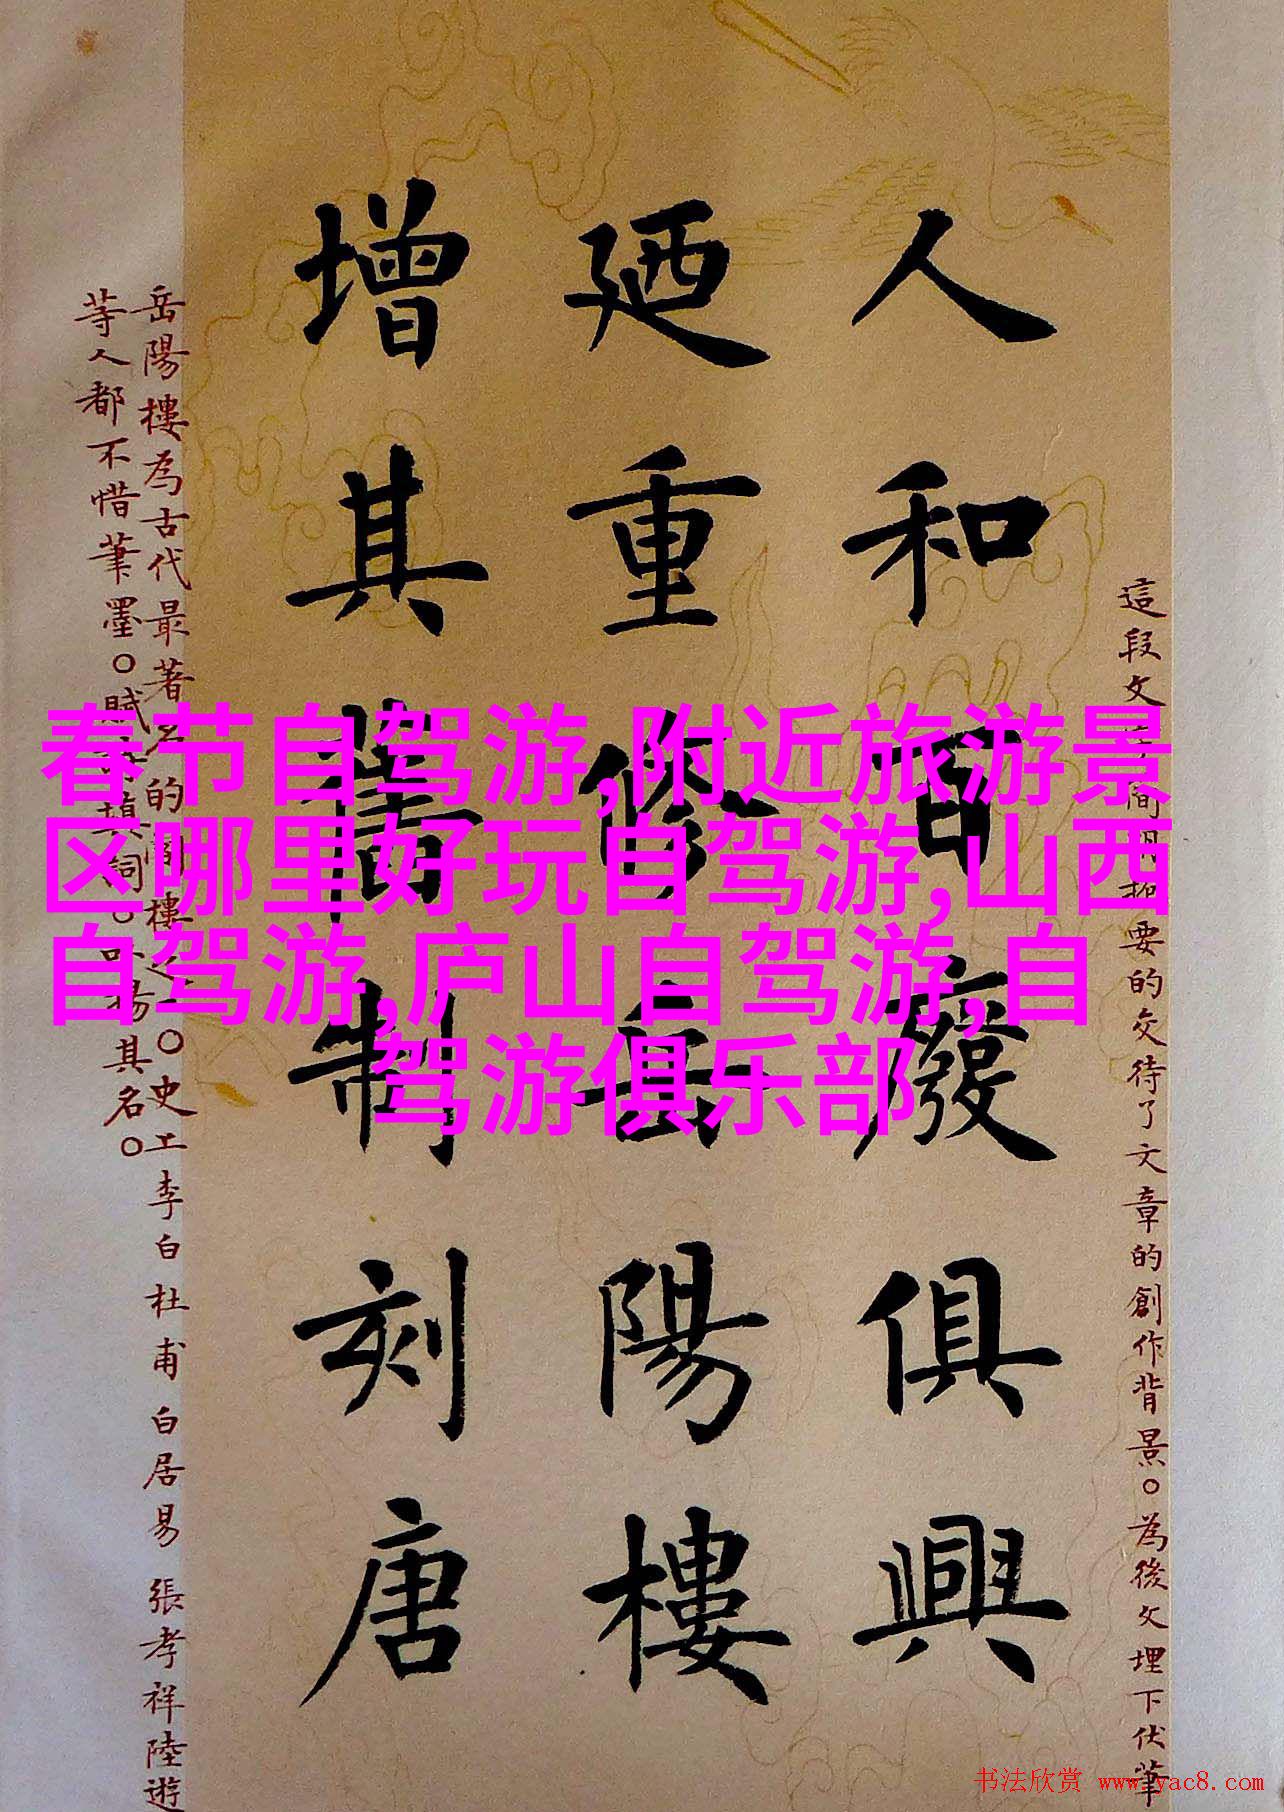 春节自驾游,附近旅游景
区哪里好玩自驾游,山西
自驾游,庐山自驾游,自
驾游俱乐部
這段文簡明扼要的交待了文章的創作背景。為後文埋下伏筆
人和百廢俱興
廼重修岳陽樓
增其舊制刻唐
岳陽樓為古代最著名的閣樓之一。史上李白杜甫白居易張孝祥陸遊
等人都不惜筆墨。賦填詞。揚其名。
书法欣赏 www.yac8.com